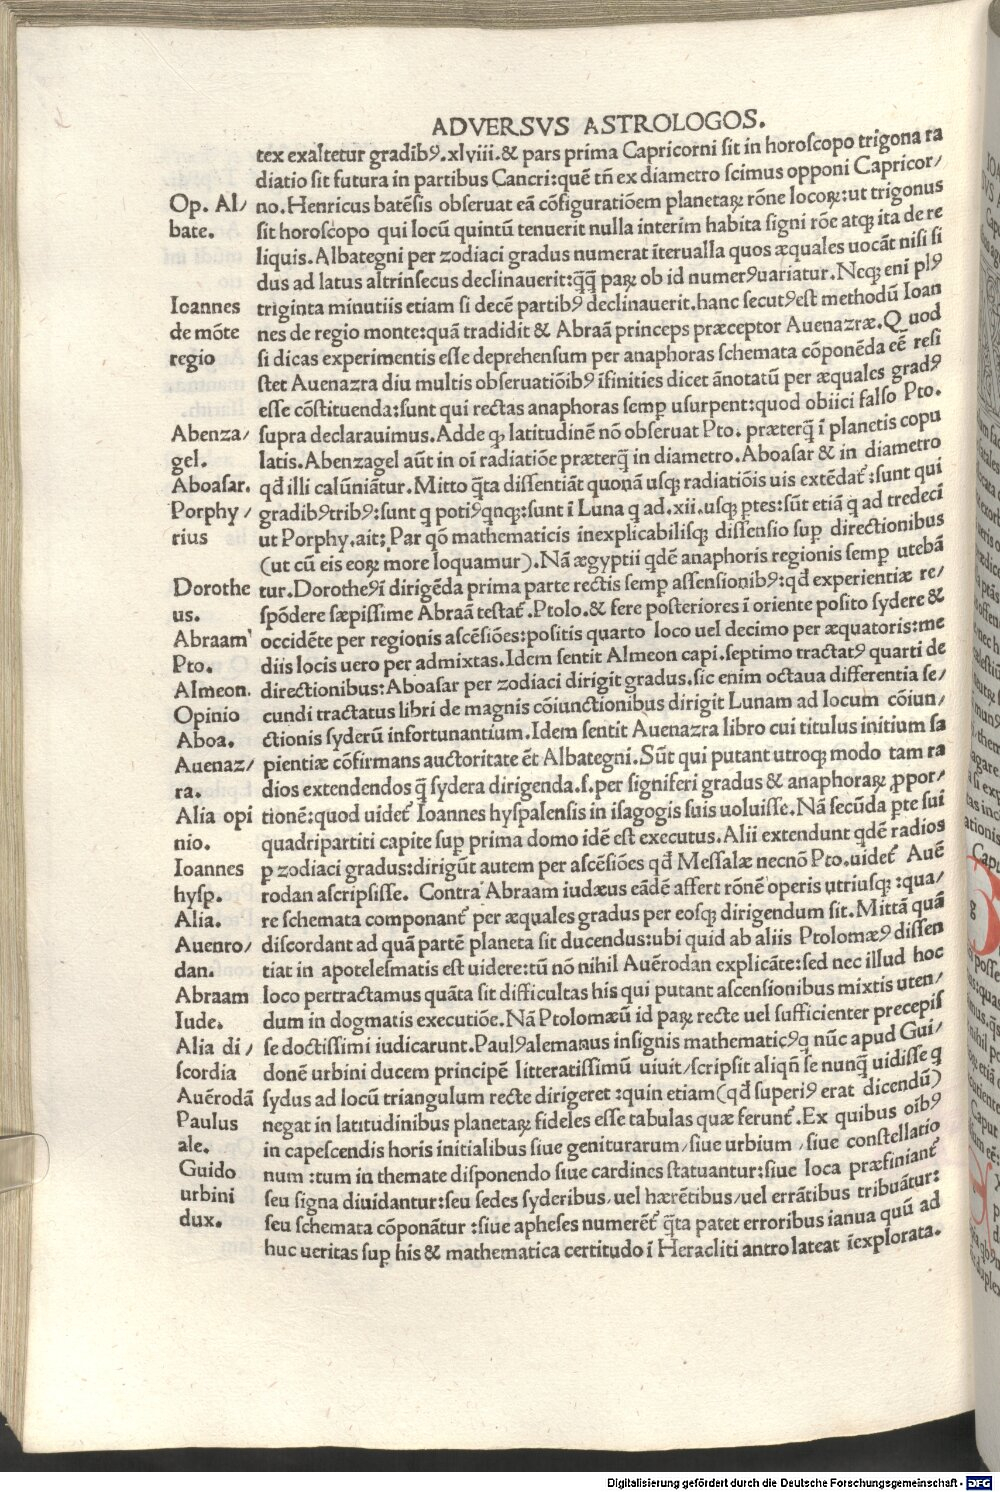 ADVERSVS ASTROLOGOS.
tex exaltetur gradibꝰ.xlviii.& pars prima Capricorni sit in horoscopo trigona ra
diatio sit futura in partibus Cancri:quē tñ ex diametro scimus opponi Capricor/
Op. Al/ no.Henricus batēsis obseruat eā cōfiguratiōem planetaꝝ rōne locoꝝ:ut trigonus
bate. sit horoscopo qui locū quintū tenuerit nulla interim habita signi rōe atqꝫ ita de re
liquis.Albategni per zodiaci gradus numerat īterualla quos æquales uocāt nisi si
dus ad latus altrinsecus declinauerit:q̄q̄ paꝝ ob id numerꝰuariatur.Neqꝫ eni plꝰ
Ioannes triginta minutiis etiam si decē partibꝰ declinauerit.hanc secutꝰest methodū Ioan
de mōte nes de regio monte:quā tradidit & Abraā princeps præceptor Auenazræ.Quod
regio si dicas experimentis esse deprehensum per anaphoras schemata cōponēda eē resi
stet Auenazra diu multis obseruatiōibꝰ ifinities dicet ānotatū per æquales gradꝰ
esse cōstituenda:sunt qui rectas anaphoras semp usurpent:quod obiici falso Pto.
Abenza/ supra declarauimus.Adde qꝫ latitudinē nō obseruat Pto. præterq̄ ī planetis copu
gel. latis.Abenzagel aūt in oī radiatiōe præterq̄ in diametro.Aboasar & in diametro
Aboasar. qđ illi calūniātur.Mitto q̄ta dissentiāt quonā usqꝫ radiatiōis uis extēdat̄:sunt qui
Porphy/ gradibꝰtribꝰ:sunt q potiꝰqnqꝫ:sunt ī Luna q ad.xii.usqꝫ ptes:sūt etiā q ad tredeci
rius ut Porphy.ait; Par qō mathematicis inexplicabilisqꝫ dissensio sup directionibus
(ut cū eis eoꝝ more loquamur).Nā ægyptii qdē anaphoris regionis semp utebā
Dorothe tur.Dorotheꝰī dirigēda prima parte rectis semp assensionibꝰ:qđ experientiæ re/
us. spōdere sæpissime Abraā testat̄.Ptolo.& fere posteriores ī oriente posito sydere &
Abraam occidēte per regionis ascēsiōes:positis quarto loco uel decimo per æquatoris:me
Pto. diis locis uero per admixtas.Idem sentit Almeon capi.septimo tractatꝰ quarti de
Almeon. directionibus:Aboasar per zodiaci dirigit gradus.sic enim octaua differentia se/
Opinio cundi tractatus libri de magnis cōiunctionibus dirigit Lunam ad locum cōiun/
Aboa. ctionis syderū infortunantium.Idem sentit Auenazra libro cui titulus initium sa
Auenaz/ pientiæ cōfirmans auctoritate ēt Albategni.Sūt qui putant utroqꝫ modo tam ra
ra. dios extendendos q̄ sydera dirigenda.s.per signiferi gradus & anaphoraꝝ ꝓpor/
Alia opi tionē:quod uidet̄ Ioannes hyspalensis in isagogis suis uoluisse.Nā secūda pte sui
nio. quadripartiti capite sup prima domo idē est executus.Alii extendunt qdē radios
Ioannes p zodiaci gradus:dirigūt autem per ascēsiōes qđ Messalæ necnō Pto.uidet̄ Auē
hysp. rodan ascripsisse. Contra Abraam iudæus eādē affert rōnē operis utriusqꝫ:qua/
Alia. re schemata componant̄ per æquales gradus per eosqꝫ dirigendum sit.Mittā quā
Auenro/ discordant ad quā partē planeta sit ducendus:ubi quid ab aliis Ptolomæꝰ dissen
dan. tiat in apotelesmatis est uidere:tū nō nihil Auērodan explicāte:sed nec illud hoc
Abraam loco pertractamus quāta sit difficultas his qui putant ascensionibus mixtis uten/
Iude. dum in dogmatis executiōe.Nā Ptolomæū id paꝝ recte uel sufficienter precepis
Alia di/ se doctissimi iudicarunt.Paulꝰalemanus insignis mathematicꝰq nūc apud Gui/
scordia donē urbini ducem principē litteratissimū uiuit/scripsit aliqñ se nunq̄ uidisse q
Auērodā sydus ad locū triangulum recte dirigeret :quin etiam(qđ superiꝰ erat dicendū)
Paulus negat in latitudinibus planetaꝝ fideles esse tabulas quæ ferunt̄.Ex quibus oibꝰ
ale. in capescendis horis initialibus siue geniturarum/siue urbium siue constellatio
Guido num :tum in themate disponendo siue cardines statuantur:siue loca præfiniant̄
urbini seu signa diuidantur:seu sedes syderibus/uel hærētibus/uel errātibus tribuātur:
dux. seu schemata cōponātur :siue apheses numerēt̄ q̄ta patet erroribus ianua quū ad
huc ueritas sup his & mathematica certitudo ī Heracliti antro lateat īexplorata.
Digitalisierung gefördert durch die Deutsche Forschungsgemeinschaft - DFG